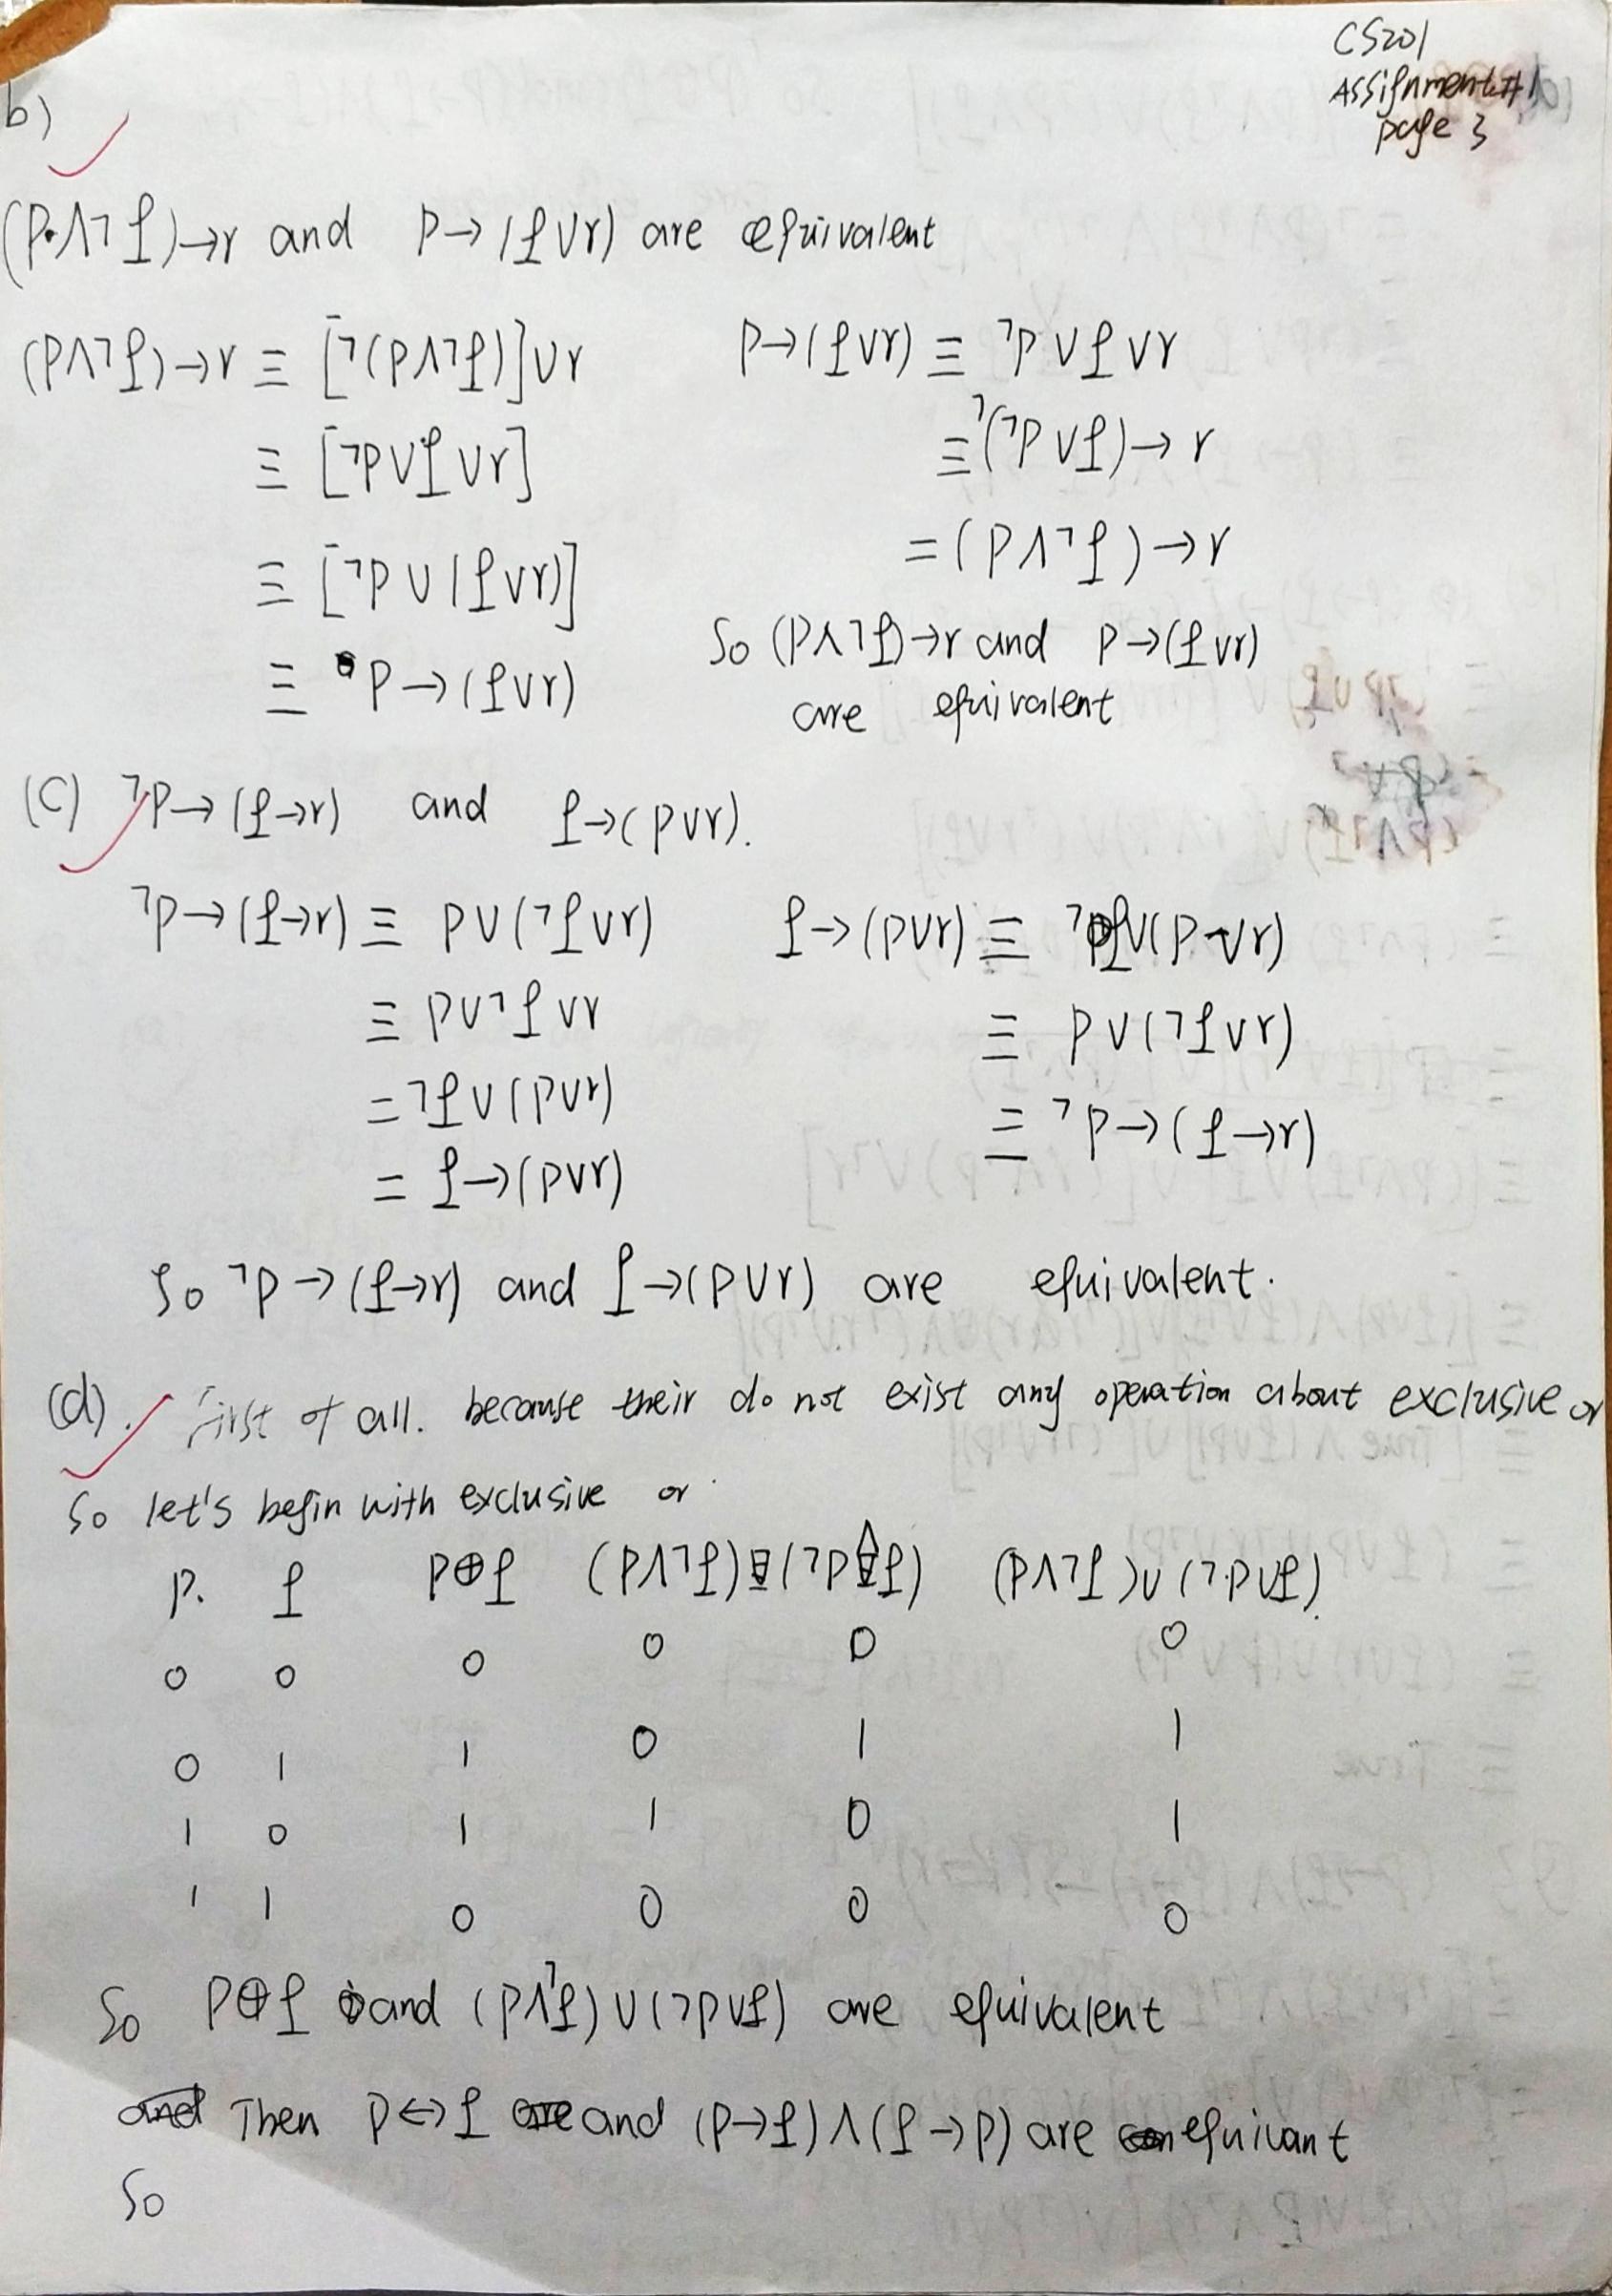 CS201
Assignment#1
page 3
b)
(p∧¬q)→r and p→(q∨r) are equivalent
(p∧¬q)→r ≡ [¬(p∧¬q)]∨r
≡ [¬p∨q∨r]
≡ [¬p∨(q∨r)]
≡ p→(q∨r)
p→(q∨r) ≡ ¬p∨q∨r
≡ ¬(¬p∨q)→r
=(p∧¬q)→r
So (p∧¬q)→r and p→(q∨r)
are equivalent
(c) ¬p→(q→r) and q→(p∨r).
¬p→(q→r) ≡ p∨(¬q∨r)
≡ p∨¬q∨r
=¬q∨(p∨r)
= q→(p∨r)
q→(p∨r) ≡ ¬q∨(p∨r)
≡ p∨(¬q∨r)
≡ ¬p→(q→r)
So ¬p→(q→r) and q→(p∨r) are equivalent.
(d). First of all. because their do not exist any operation about exclusive or
So let's begin with exclusive or
p. q p⊕q (p∧¬q) (¬p∧q) (p∧¬q)∨(¬p∨q).
0 0 0 0 0 0
0 1 1 0 1 1
1 0 1 1 0 1
1 1 0 0 0 0
So p⊕q and (p∧¬q)∨(¬p∨q) are equivalent
Then p↔q and (p→q)∧(q→p) are equivant
So